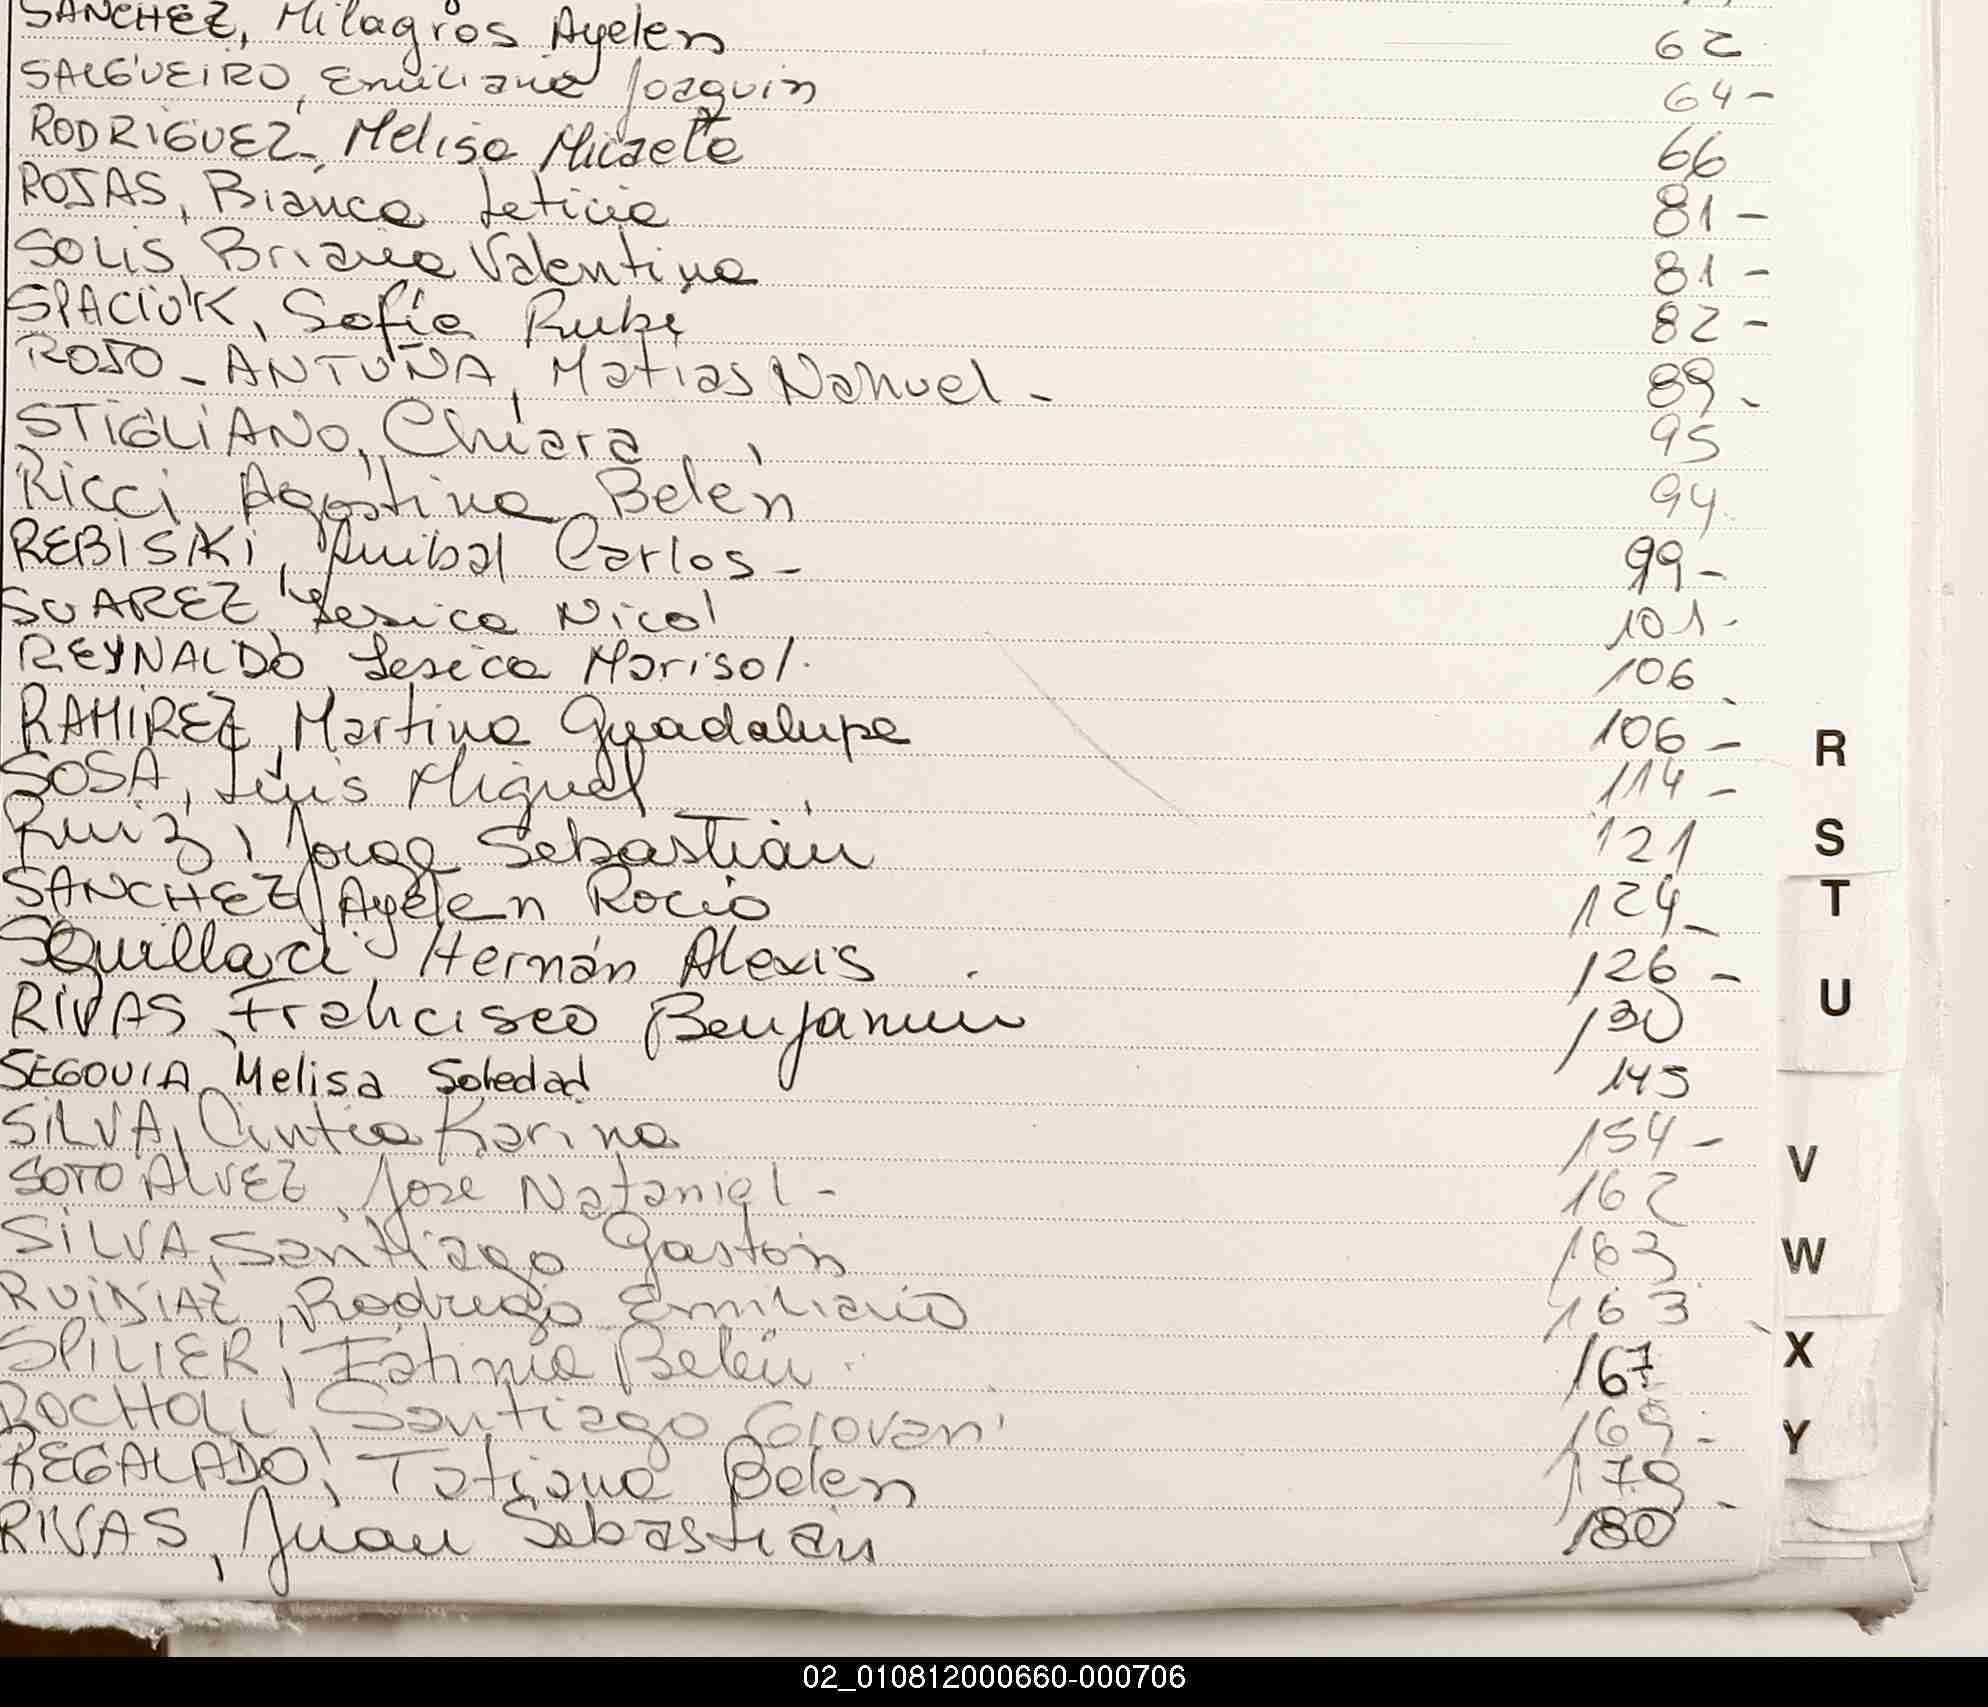 SANCHEZ, Milagros Ayelen 62
SALGUEIRO, Emiliano Joaquin 64-
RODRIGUEZ, Melisa Micaela 66
ROJAS, Bianca Leticia 81-
SOLIS Briana Valentina 81-
SPACIUK, Sofía Rubi 82-
ROJO-ANTUÑA, Matias Nahuel- 89-
STIGLIANO, Chiara 95
Ricci Agostina Belén 94
REBISKI, Anibal Carlos- 99-
SUAREZ Yesica Nicol 101-
REYNALDO Yesica Marisol. 106
RAMIREZ, Martina Guadalupe 106-
SOSA, Luis Miguel 114-
Ruiz, Jorge Sebastián 121
SANCHEZ, Ayelen Rocio 124-
SQuillaci Hernán Alexis 126-
RIVAS, Francisco Benjamin 130
SEGOVIA, Melisa Soledad 145
SILVA, Cintia Karina 154-
SOTO ALVEZ, Jose Nataniel- 162
SILVA, Santiago Gastón 163
RUIDIAZ, Rodrigo Emiliano 163
SPILIER, Fatima Belén 167
ROCHOLL, Santiago Giovani 169-
REGALADO, Tatiana Belen 179
RIVAS, Juan Sebastián 180
R
S
T
U
V
W
X
Y
02_010812000660-000706